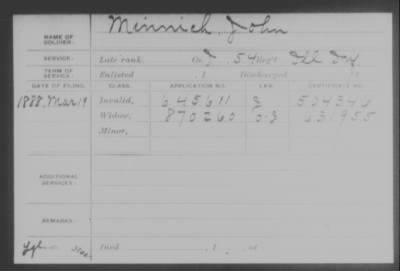 NAME OF SOLDIER: Minnich, John
SERVICE: Late rank, Co. I, 54 Reg't Ill Inf
TERM OF SERVICE: Enlisted , 1 Discharged , 1
DATE OF FILING. CLASS. APPLICATION NO. LAW. CERTIFICATE NO.
1888, Mar 19 Invalid, 645611 504346
Widow, 870260 631955
Minor,
ADDITIONAL SERVICES:
REMARKS:
Died , 1 , at